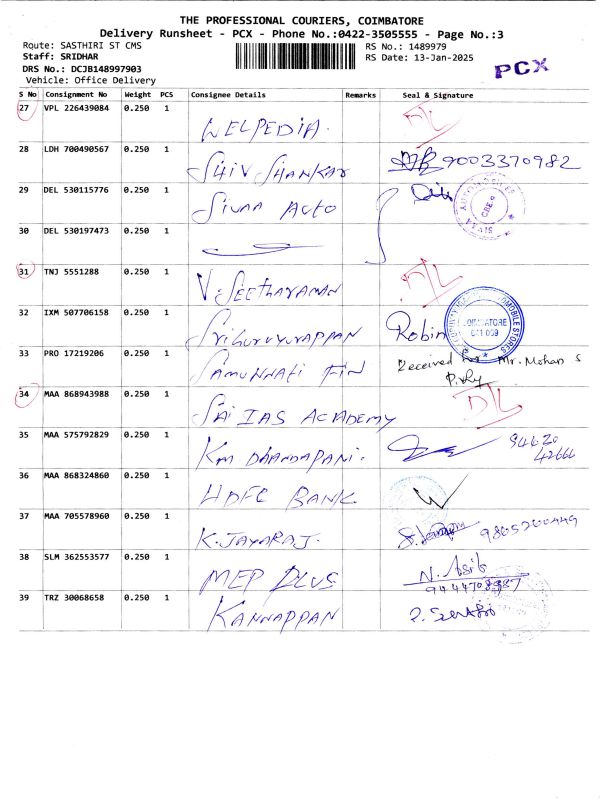 THE PROFESSIONAL COURIERS, COIMBATORE
Delivery Runsheet - PCX - Phone No.:0422-3505555 - Page No.:3
Route: SASTHIRI ST CMS
RS No.: 1489979
Staff: SRIDHAR
RS Date: 13-Jan-2025
PCX
DRS No.: DCJB148997903
Vehicle: Office Delivery
S No Consignment No Weight PCS Consignee Details Remarks Seal & Signature
27 VPL 226439084 0.250 1 WELPEDIA. DL
28 LDH 700490567 0.250 1 SHIV SHANKAR 9003370982
29 DEL 530115776 0.250 1 SIVAA AUTO
30 DEL 530197473 0.250 1
31 TNJ 5551288 0.250 1 V. SEETHARAMAN DL
32 IXM 507706158 0.250 1 SRIGURUVURAPPAN Robin
33 PRO 17219206 0.250 1 SAMUNNATI FIN Received for Mr. Mohan S
34 MAA 868943988 0.250 1 SAI IAS ACADEMY DL
35 MAA 575792829 0.250 1 KM DHANDAPANI. 94620 42666
36 MAA 868324860 0.250 1 HDFC BANK
37 MAA 705578960 0.250 1 K. JAYARAJ.
38 SLM 362553577 0.250 1 MEP PLUS N. Asib
39 TRZ 30068658 0.250 1 KANNAPPAN